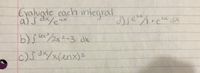 Evaluate each integral
a) ∫ dx/e^-x d) ∫ e^-x/1+e^-x dx
b) ∫ 4x²/2x³-3 dx
c) ∫ dx/x(lnx)²